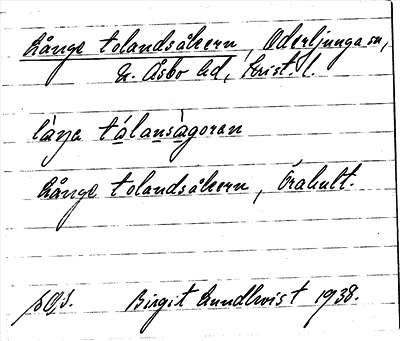 Långe tolandsåkern, Oderljunga sn,
N. Åsbo hd, Krist. l.
làŋe tálansàgoran
Långe tolandsåkern, Örahult.
Birgit Lundkvist 1938.